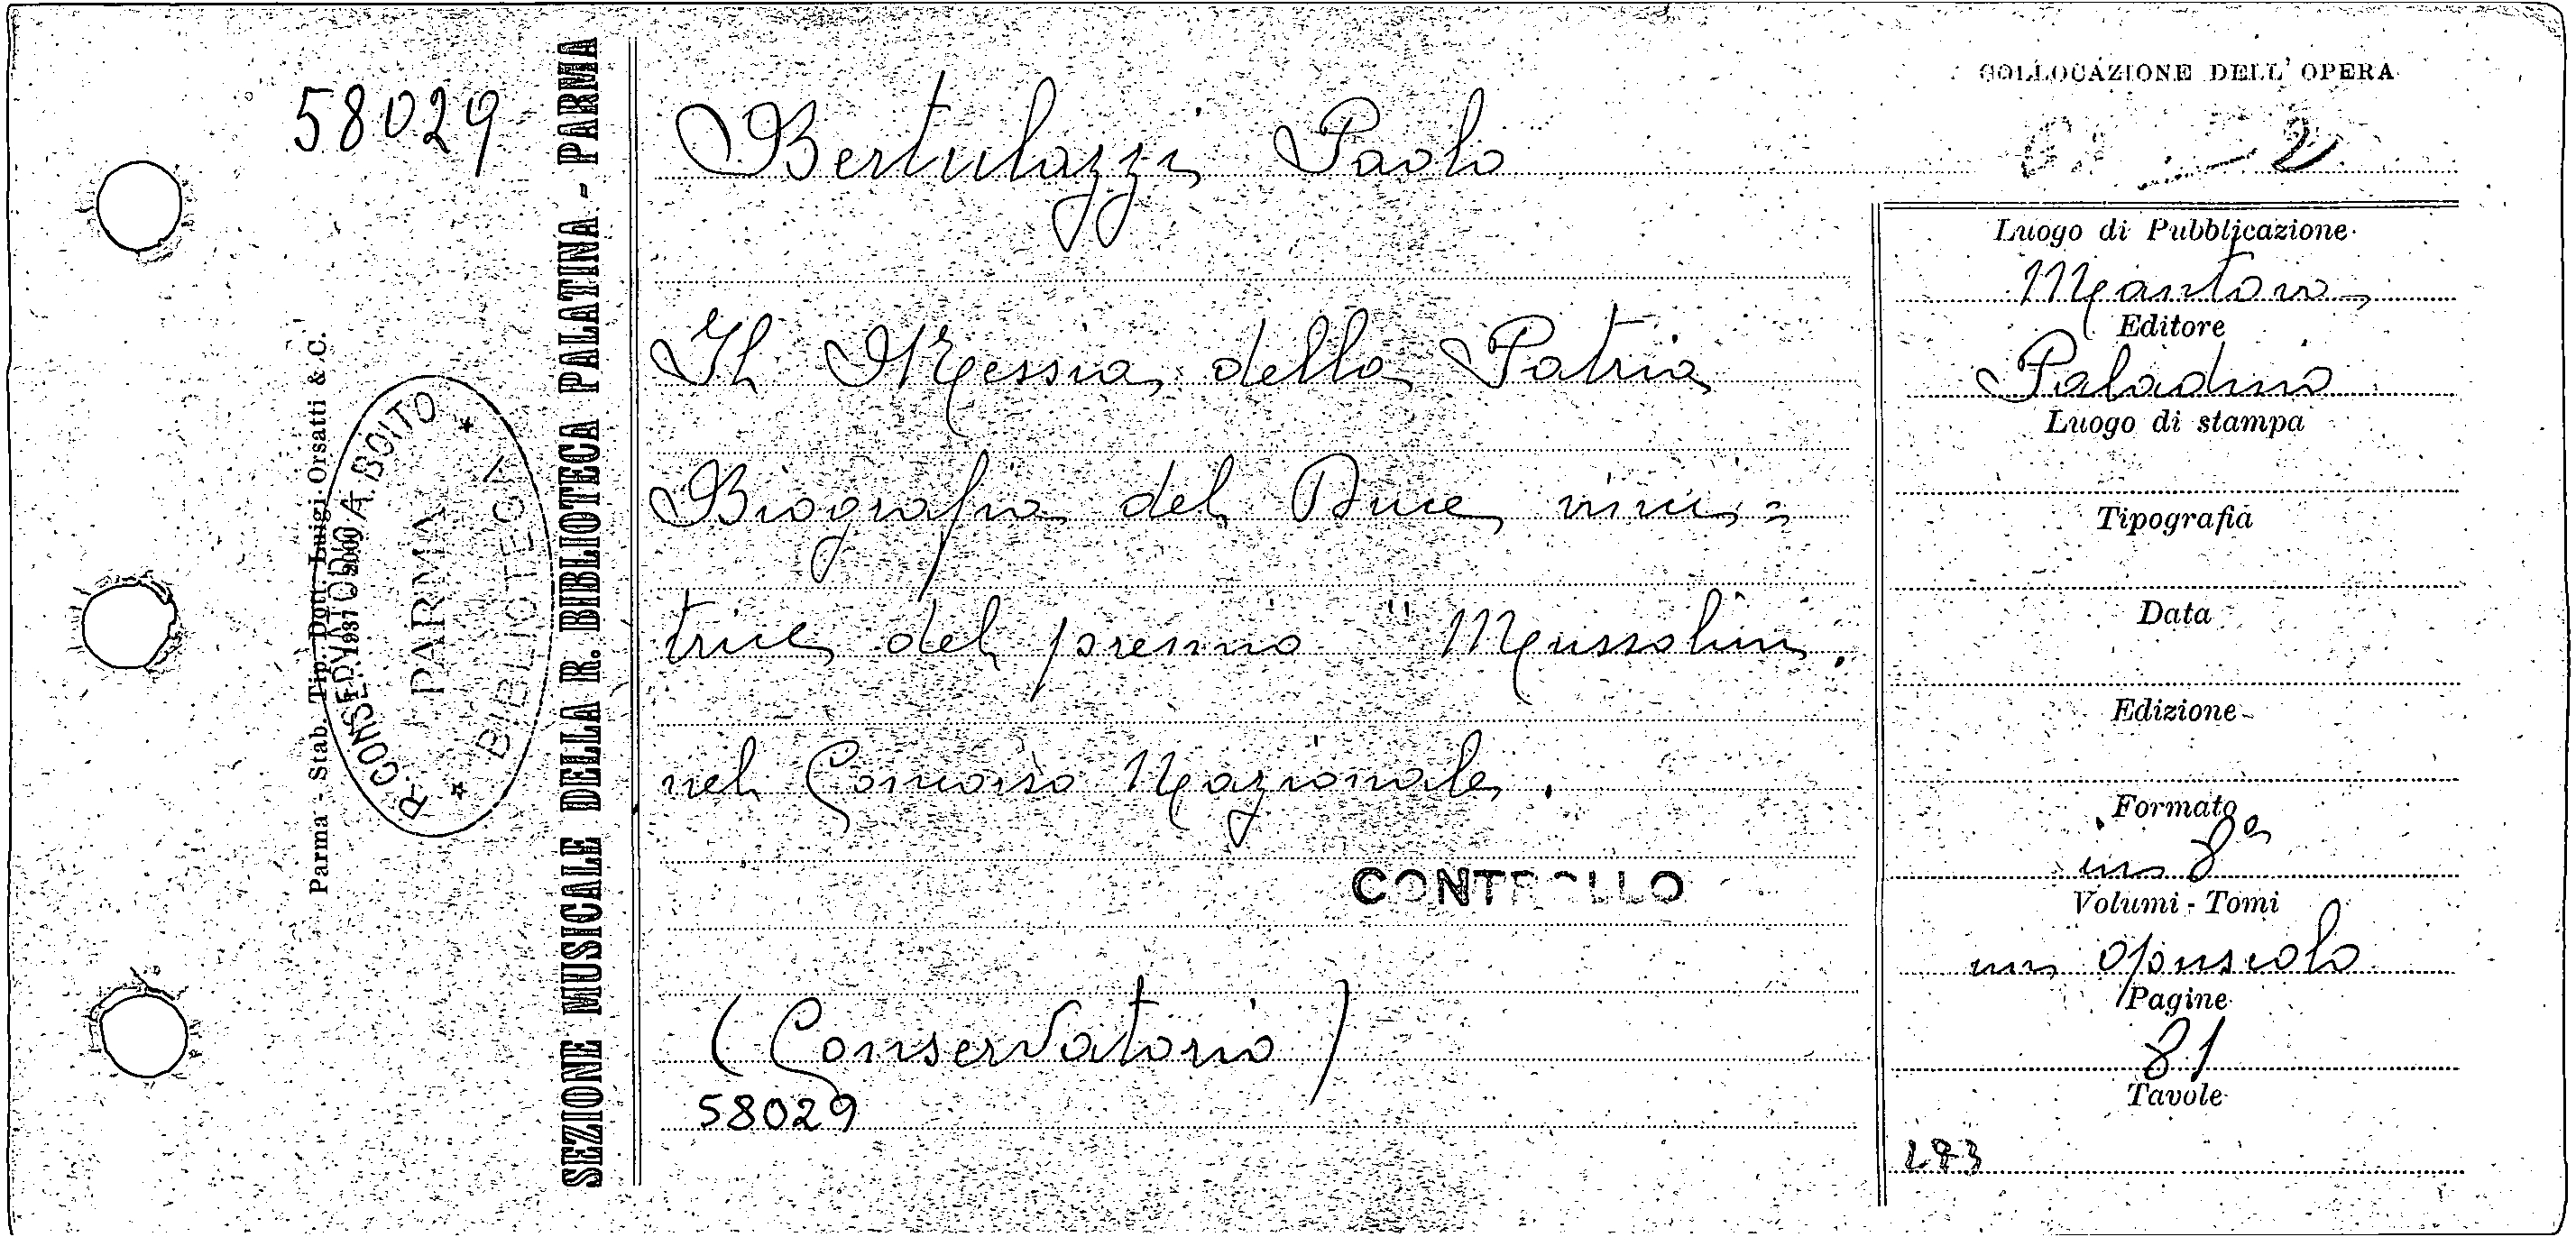 58029
SEZIONE MUSICALE DELLA R. BIBLIOTECA PALATINA - PARMA
Parma - Stab. Tip. Dott. Luigi Orsatti & C.
1937 2000
R. CONSERVATORIO A. BOITO
PARMA
* BIBLIOTECA *
Bertulazzi Paolo
Il Messia della Patria
Biografia del Duce vinci=
trice del premio "Mussolini
nel Concorso Nazionale.
CONTROLLO
(Conservatorio)
58029
COLLOCAZIONE DELL' OPERA
Luogo di Pubblicazione
Mantova
Editore
Paladino
Luogo di stampa
Tipografia
Data
Edizione
Formato
in 8º
Volumi - Tomi
un opuscolo
Pagine
81
Tavole